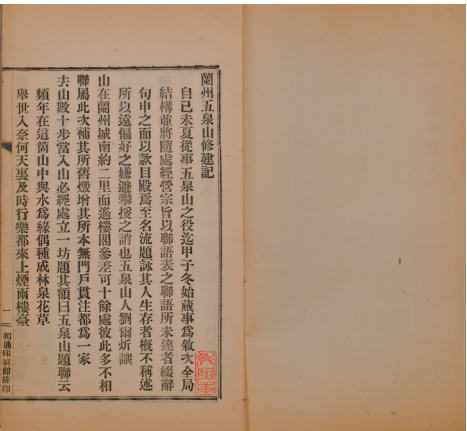 蘭州五泉山修建記
自己未夏從事五泉山之役迄甲子冬始蕆事爲敘次全局
結構並將隨處經營宗旨以聯語表之聯語所未達者綴辭
句申之而以款目殿焉至名流題詠其人生存者概不稱述
所以遠偏好之嫌避攀援之誚也五泉山人劉爾炘識
山在蘭州城南約二里而遙樓閣參差可十餘處彼此多不相
聯屬此次補其所舊燬增其所本無門戶貫注都爲一家
去山數十步當入山必經處立一坊題其額曰五泉山題聯云
頻年在這箇山中與水爲緣偶種成林泉花草
舉世入奈何天裏及時行樂都來上煙雨樓臺
一
和通印刷館排印